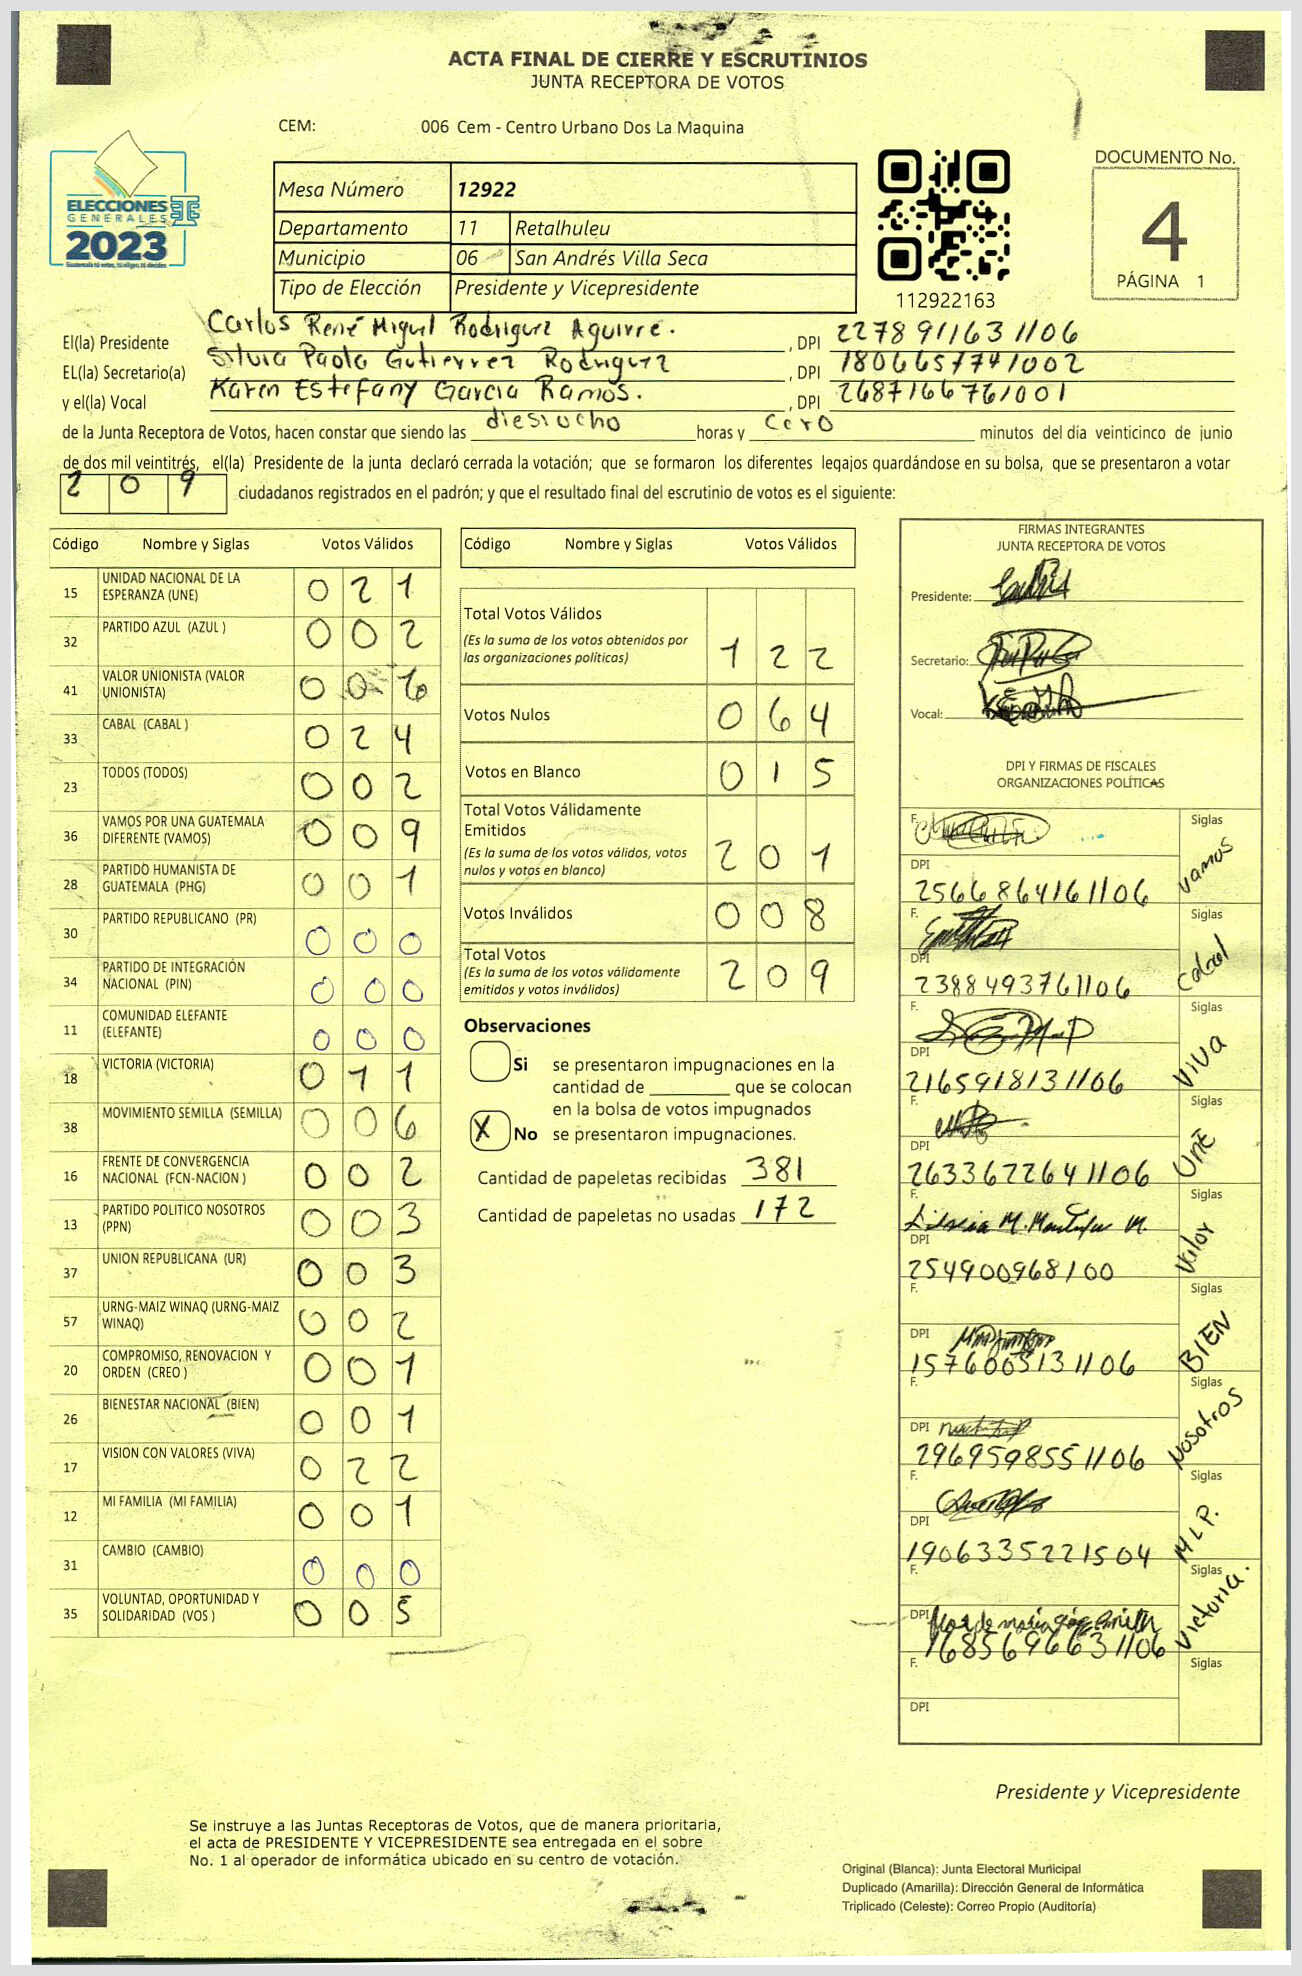 ACTA FINAL DE CIERRE Y ESCRUTINIOS
JUNTA RECEPTORA DE VOTOS
CEM: 006 Cem - Centro Urbano Dos La Maquina
ELECCIONES
GENERALES
2023
Mesa Número 12922
Departamento 11 Retalhuleu
Municipio 06 San Andrés Villa Seca
Tipo de Elección Presidente y Vicepresidente
112922163
DOCUMENTO No.
4
PÁGINA 1
El(la) Presidente Carlos René Miguel Rodriguez Aguirre. , DPI 2278911631106
EL(la) Secretario(a) Silvia Paola Gutierrez Rodriguez , DPI 1806657741002
y el(la) Vocal Karen Estefany Garcia Ramos. , DPI 2687166761001
de la Junta Receptora de Votos, hacen constar que siendo las diesiocho horas y cero minutos del día veinticinco de junio
de dos mil veintitrés, el(la) Presidente de la junta declaró cerrada la votación; que se formaron los diferentes legajos quardándose en su bolsa, que se presentaron a votar
2 0 9 ciudadanos registrados en el padrón; y que el resultado final del escrutinio de votos es el siguiente:
Código Nombre y Siglas Votos Válidos
15 UNIDAD NACIONAL DE LA ESPERANZA (UNE) 0 2 1
32 PARTIDO AZUL (AZUL ) 0 0 2
41 VALOR UNIONISTA (VALOR UNIONISTA) 0 0 6
33 CABAL (CABAL ) 0 2 4
23 TODOS (TODOS) 0 0 2
36 VAMOS POR UNA GUATEMALA DIFERENTE (VAMOS) 0 0 9
28 PARTIDO HUMANISTA DE GUATEMALA (PHG) 0 0 1
30 PARTIDO REPUBLICANO (PR) 0 0 0
34 PARTIDO DE INTEGRACIÓN NACIONAL (PIN) 0 0 0
11 COMUNIDAD ELEFANTE (ELEFANTE) 0 0 0
18 VICTORIA (VICTORIA) 0 1 1
38 MOVIMIENTO SEMILLA (SEMILLA) 0 0 6
16 FRENTE DE CONVERGENCIA NACIONAL (FCN-NACION ) 0 0 2
13 PARTIDO POLITICO NOSOTROS (PPN) 0 0 3
37 UNION REPUBLICANA (UR) 0 0 3
57 URNG-MAIZ WINAQ (URNG-MAIZ WINAQ) 0 0 2
20 COMPROMISO, RENOVACION Y ORDEN (CREO ) 0 0 1
26 BIENESTAR NACIONAL (BIEN) 0 0 1
17 VISION CON VALORES (VIVA) 0 2 2
12 MI FAMILIA (MI FAMILIA) 0 0 1
31 CAMBIO (CAMBIO) 0 0 0
35 VOLUNTAD, OPORTUNIDAD Y SOLIDARIDAD (VOS ) 0 0 5
Código Nombre y Siglas Votos Válidos
Total Votos Válidos 1 2 2
(Es la suma de los votos obtenidos por
las organizaciones politicas)
Votos Nulos 0 6 4
Votos en Blanco 0 1 5
Total Votos Válidamente
Emitidos 2 0 1
(Es la suma de los votos válidos, votos
nulos y votos en blanco)
Votos Inválidos 0 0 8
Total Votos 2 0 9
(Es la suma de los votos válidamente
emitidos y votos inválidos)
Observaciones
Si se presentaron impugnaciones en la
cantidad de ________ que se colocan
en la bolsa de votos impugnados
X No se presentaron impugnaciones.
Cantidad de papeletas recibidas 381
Cantidad de papeletas no usadas 172
FIRMAS INTEGRANTES
JUNTA RECEPTORA DE VOTOS
Presidente:
Secretario:
Vocal:
DPI Y FIRMAS DE FISCALES
ORGANIZACIONES POLÍTICAS
F. Siglas
DPI 2566864161106 Vamos
F. Siglas
DPI 2388493761106 Cabal
F. Siglas
DPI 2165918131106 VIVA
F. Siglas
DPI 2633622641106 UnE
F. Siglas
DPI 254900968100 Valor
F. Siglas
DPI 1576005131106 BIEN
F. Siglas
DPI 2969598551106 Nosotros
F. Siglas
DPI 1906335221504 MLP.
F. Siglas
DPI 1685696631106 Victoria.
F. Siglas
DPI
Presidente y Vicepresidente
Se instruye a las Juntas Receptoras de Votos, que de manera prioritaria,
el acta de PRESIDENTE Y VICEPRESIDENTE sea entregada en el sobre
No. 1 al operador de informática ubicado en su centro de votación.
Original (Blanca): Junta Electoral Municipal
Duplicado (Amarilla): Dirección General de Informática
Triplicado (Celeste): Correo Propio (Auditoría)